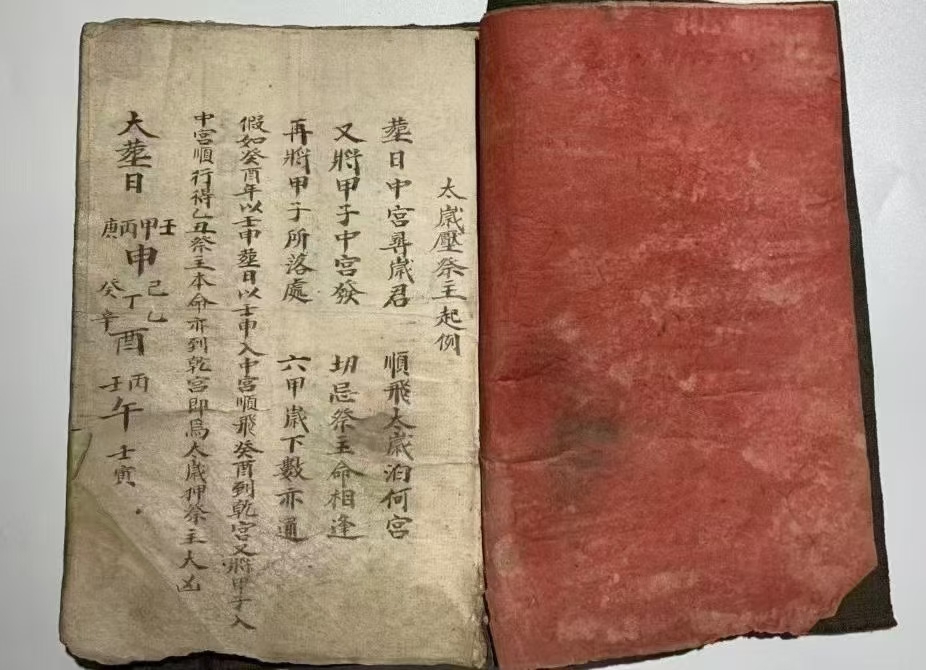 太歲壓祭主起例
葬日中宮尋歲君 順飛太歲泊何宮
又將甲子中宮發 切忌祭主命相逢
再將甲子所落處 六甲歲下數亦通
假如癸酉年以壬申葬日以壬申入中宮順飛癸酉到乾宮又將甲子入
中宮順行得乙丑祭主本命亦到乾宮即爲太歲押祭主大凶
大葬日 壬甲丙庚申 己乙丁癸辛酉 丙壬午 壬寅